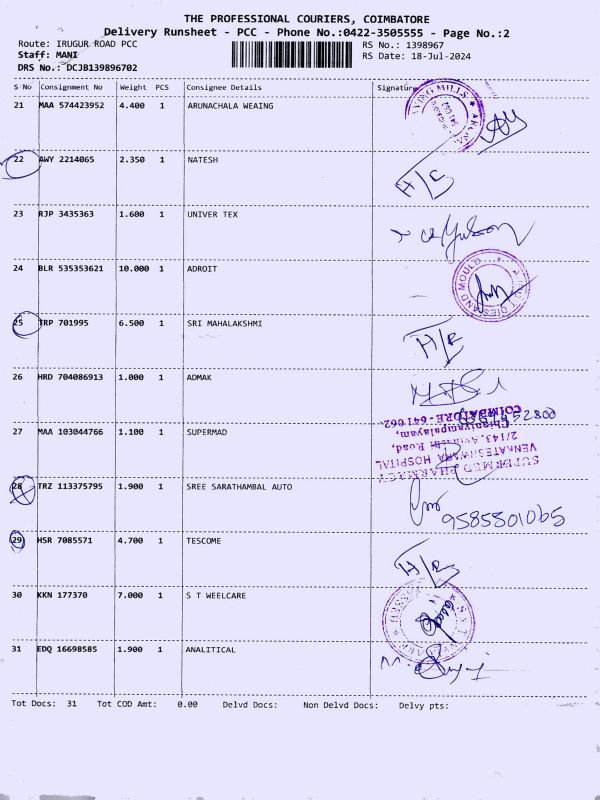 THE PROFESSIONAL COURIERS, COIMBATORE
Delivery Runsheet - PCC - Phone No.:0422-3505555 - Page No.:2
Route: IRUGUR ROAD PCC RS No.: 1398967
Staff: MANI RS Date: 18-Jul-2024
DRS No.: DCJB139896702
S No Consignment No Weight PCS Consignee Details Signature
21 MAA 574423952 4.400 1 ARUNACHALA WEAING
22 AWY 2214065 2.350 1 NATESH
H/E
23 RJP 3435363 1.600 1 UNIVER TEX
24 BLR 535353621 10.000 1 ADROIT
DIES AND MOULD
25 TRP 701995 6.500 1 SRI MAHALAKSHMI
H/E
26 HRD 704086913 1.000 1 ADMAK
27 MAA 103044766 1.100 1 SUPERMAD
SUPERMED PHARMACY
VENKATESHWARA HOSPITAL
2/143, Road,
Chinniyampalayam,
COIMBATORE-641 062.
28 TRZ 113375795 1.900 1 SREE SARATHAMBAL AUTO
9585501065
29 HSR 7085571 4.700 1 TESCOME
H/E
30 KKN 177370 7.000 1 S T WEELCARE
31 EDQ 16698585 1.900 1 ANALITICAL
Tot Docs: 31 Tot COD Amt: 0.00 Delvd Docs: Non Delvd Docs: Delvy pts: